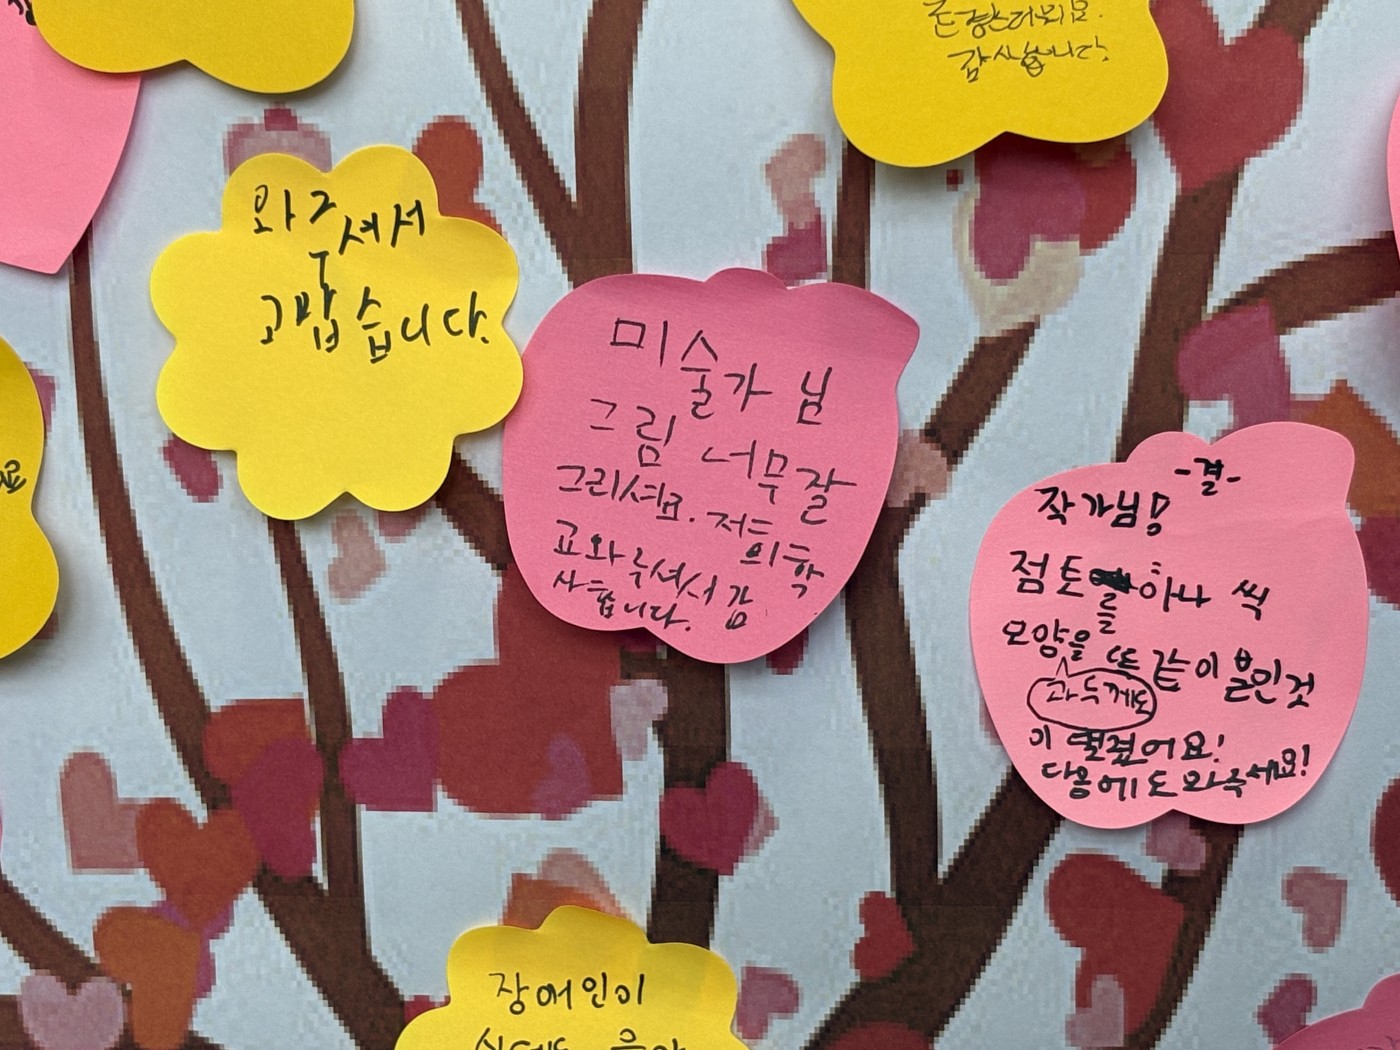 감사합니다.
와주셔서
고맙습니다.
미술가 님
그림 너무 잘
그리셔요. 저희 학
교 와주셔서 감
사합니다.
-결-
작가님!
점토를 하나 씩
모양을 똑같이 붙인것
과 두께도
이 멋졌어요!
다음에도 와주세요!
장애인이